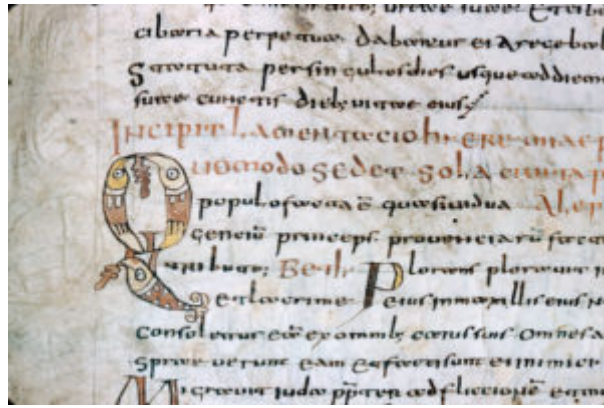 cibaria perpetua dabantur ei a rege babil
statuta per singulos dies usque ad diem
suae cunctis dieb; vitae eius
Incipit Lamentacio hieremiae p
Quomodo sedet sola civita p
populo facta ē quasi vidua Alep
genciū princeps provinciarū facta
tributo; Beth Plorans ploravit i
et lacrime eius in maxillis eius n
consoletur eā ex omnib; caris suis Omnes a
sprae verunt eam et facti sunt ei inimici
Migravit iuda pp̄ter adfliccionē et m